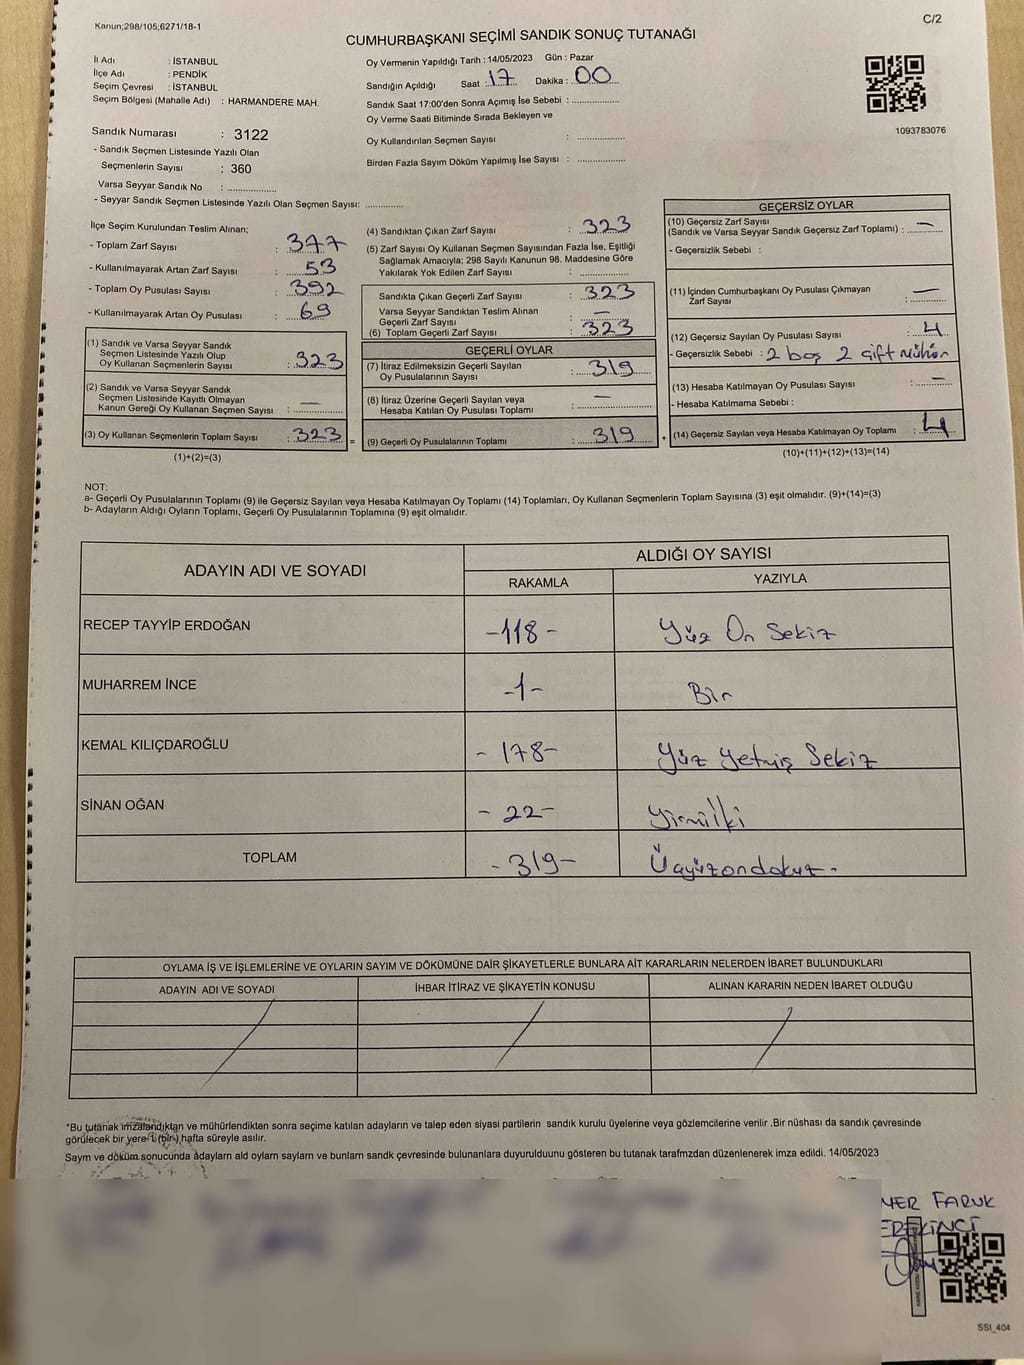 Kanun;298/105;6271/18-1
C/2
CUMHURBAŞKANI SEÇİMİ SANDIK SONUÇ TUTANAĞI
İl Adı : İSTANBUL
İlçe Adı : PENDİK
Seçim Çevresi : İSTANBUL
Seçim Bölgesi (Mahalle Adı) : HARMANDERE MAH.
Sandık Numarası : 3122
- Sandık Seçmen Listesinde Yazılı Olan
Seçmenlerin Sayısı : 360
Varsa Seyyar Sandık No :
- Seyyar Sandık Seçmen Listesinde Yazılı Olan Seçmen Sayısı:
Oy Vermenin Yapıldığı Tarih : 14/05/2023 Gün : Pazar
Sandığın Açıldığı Saat : 17 Dakika : 00
Sandık Saat 17:00'den Sonra Açımış İse Sebebi :
Oy Verme Saati Bitiminde Sırada Bekleyen ve
Oy Kullandırılan Seçmen Sayısı :
Birden Fazla Sayım Döküm Yapılmış İse Sayısı :
1093783076
İlçe Seçim Kurulundan Teslim Alınan;
- Toplam Zarf Sayısı : 377
- Kullanılmayarak Artan Zarf Sayısı : 53
- Toplam Oy Pusulası Sayısı : 392
- Kullanılmayarak Artan Oy Pusulası : 69
(1) Sandık ve Varsa Seyyar Sandık
Seçmen Listesinde Yazılı Olup
Oy Kullanan Seçmenlerin Sayısı : 323
(2) Sandık ve Varsa Seyyar Sandık
Seçmen Listesinde Kayıtlı Olmayan
Kanun Gereği Oy Kullanan Seçmen Sayısı : —
(3) Oy Kullanan Seçmenlerin Toplam Sayısı : 323 =
(1)+(2)=(3)
(4) Sandıktan Çıkan Zarf Sayısı : 323
(5) Zarf Sayısı Oy Kullanan Seçmen Sayısından Fazla İse, Eşitliği
Sağlamak Amacıyla; 298 Sayılı Kanunun 98. Maddesine Göre
Yakılarak Yok Edilen Zarf Sayısı :
Sandıkta Çıkan Geçerli Zarf Sayısı : 323
Varsa Seyyar Sandıktan Teslim Alınan
Geçerli Zarf Sayısı : —
(6) Toplam Geçerli Zarf Sayısı : 323
GEÇERLİ OYLAR
(7) İtiraz Edilmeksizin Geçerli Sayılan
Oy Pusulalarının Sayısı : 319
(8) İtiraz Üzerine Geçerli Sayılan veya
Hesaba Katılan Oy Pusulası Toplamı : —
(9) Geçerli Oy Pusulalarının Toplamı : 319 +
GEÇERSİZ OYLAR
(10) Geçersiz Zarf Sayısı
(Sandık ve Varsa Seyyar Sandık Geçersiz Zarf Toplamı) : —
- Geçersizlik Sebebi :
(11) İçinden Cumhurbaşkanı Oy Pusulası Çıkmayan
Zarf Sayısı : —
(12) Geçersiz Sayılan Oy Pusulası Sayısı : 4
- Geçersizlik Sebebi : 2 boş 2 çift mühür
(13) Hesaba Katılmayan Oy Pusulası Sayısı : —
- Hesaba Katılmama Sebebi :
(14) Geçersiz Sayılan veya Hesaba Katılmayan Oy Toplamı : 4
(10)+(11)+(12)+(13)=(14)
NOT:
a- Geçerli Oy Pusulalarının Toplamı (9) ile Geçersiz Sayılan veya Hesaba Katılmayan Oy Toplamı (14) Toplamları, Oy Kullanan Seçmenlerin Toplam Sayısına (3) eşit olmalıdır. (9)+(14)=(3)
b- Adayların Aldığı Oyların Toplamı, Geçerli Oy Pusulalarının Toplamına (9) eşit olmalıdır.
ADAYIN ADI VE SOYADI
ALDIĞI OY SAYISI
RAKAMLA YAZIYLA
RECEP TAYYİP ERDOĞAN -118- Yüz On Sekiz
MUHARREM İNCE -1- Bir
KEMAL KILIÇDAROĞLU - 178- Yüz Yetmiş Sekiz
SİNAN OĞAN - 22- Yirmiİki
TOPLAM - 319- Üçyüzondokuz.
OYLAMA İŞ VE İŞLEMLERİNE VE OYLARIN SAYIM VE DÖKÜMÜNE DAİR ŞİKAYETLERLE BUNLARA AİT KARARLARIN NELERDEN İBARET BULUNDUKLARI
ADAYIN ADI VE SOYADI İHBAR İTİRAZ VE ŞİKAYETİN KONUSU ALINAN KARARIN NEDEN İBARET OLDUĞU
*Bu tutanak imzalandıktan ve mühürlendikten sonra seçime katılan adayların ve talep eden siyasi partilerin sandık kurulu üyelerine veya gözlemcilerine verilir .Bir nüshası da sandık çevresinde
görülecek bir yere 1 (bir) hafta süreyle asılır.
Sayım ve döküm sonucunda adayların ald oyların sayların ve bunların sandk çevresinde bulunanlara duyurulduunu gösteren bu tutanak tarafmzdan düzenlenerek imza edildi. 14/05/2023
MER FARUK
EREKİNCİ
SSI_404